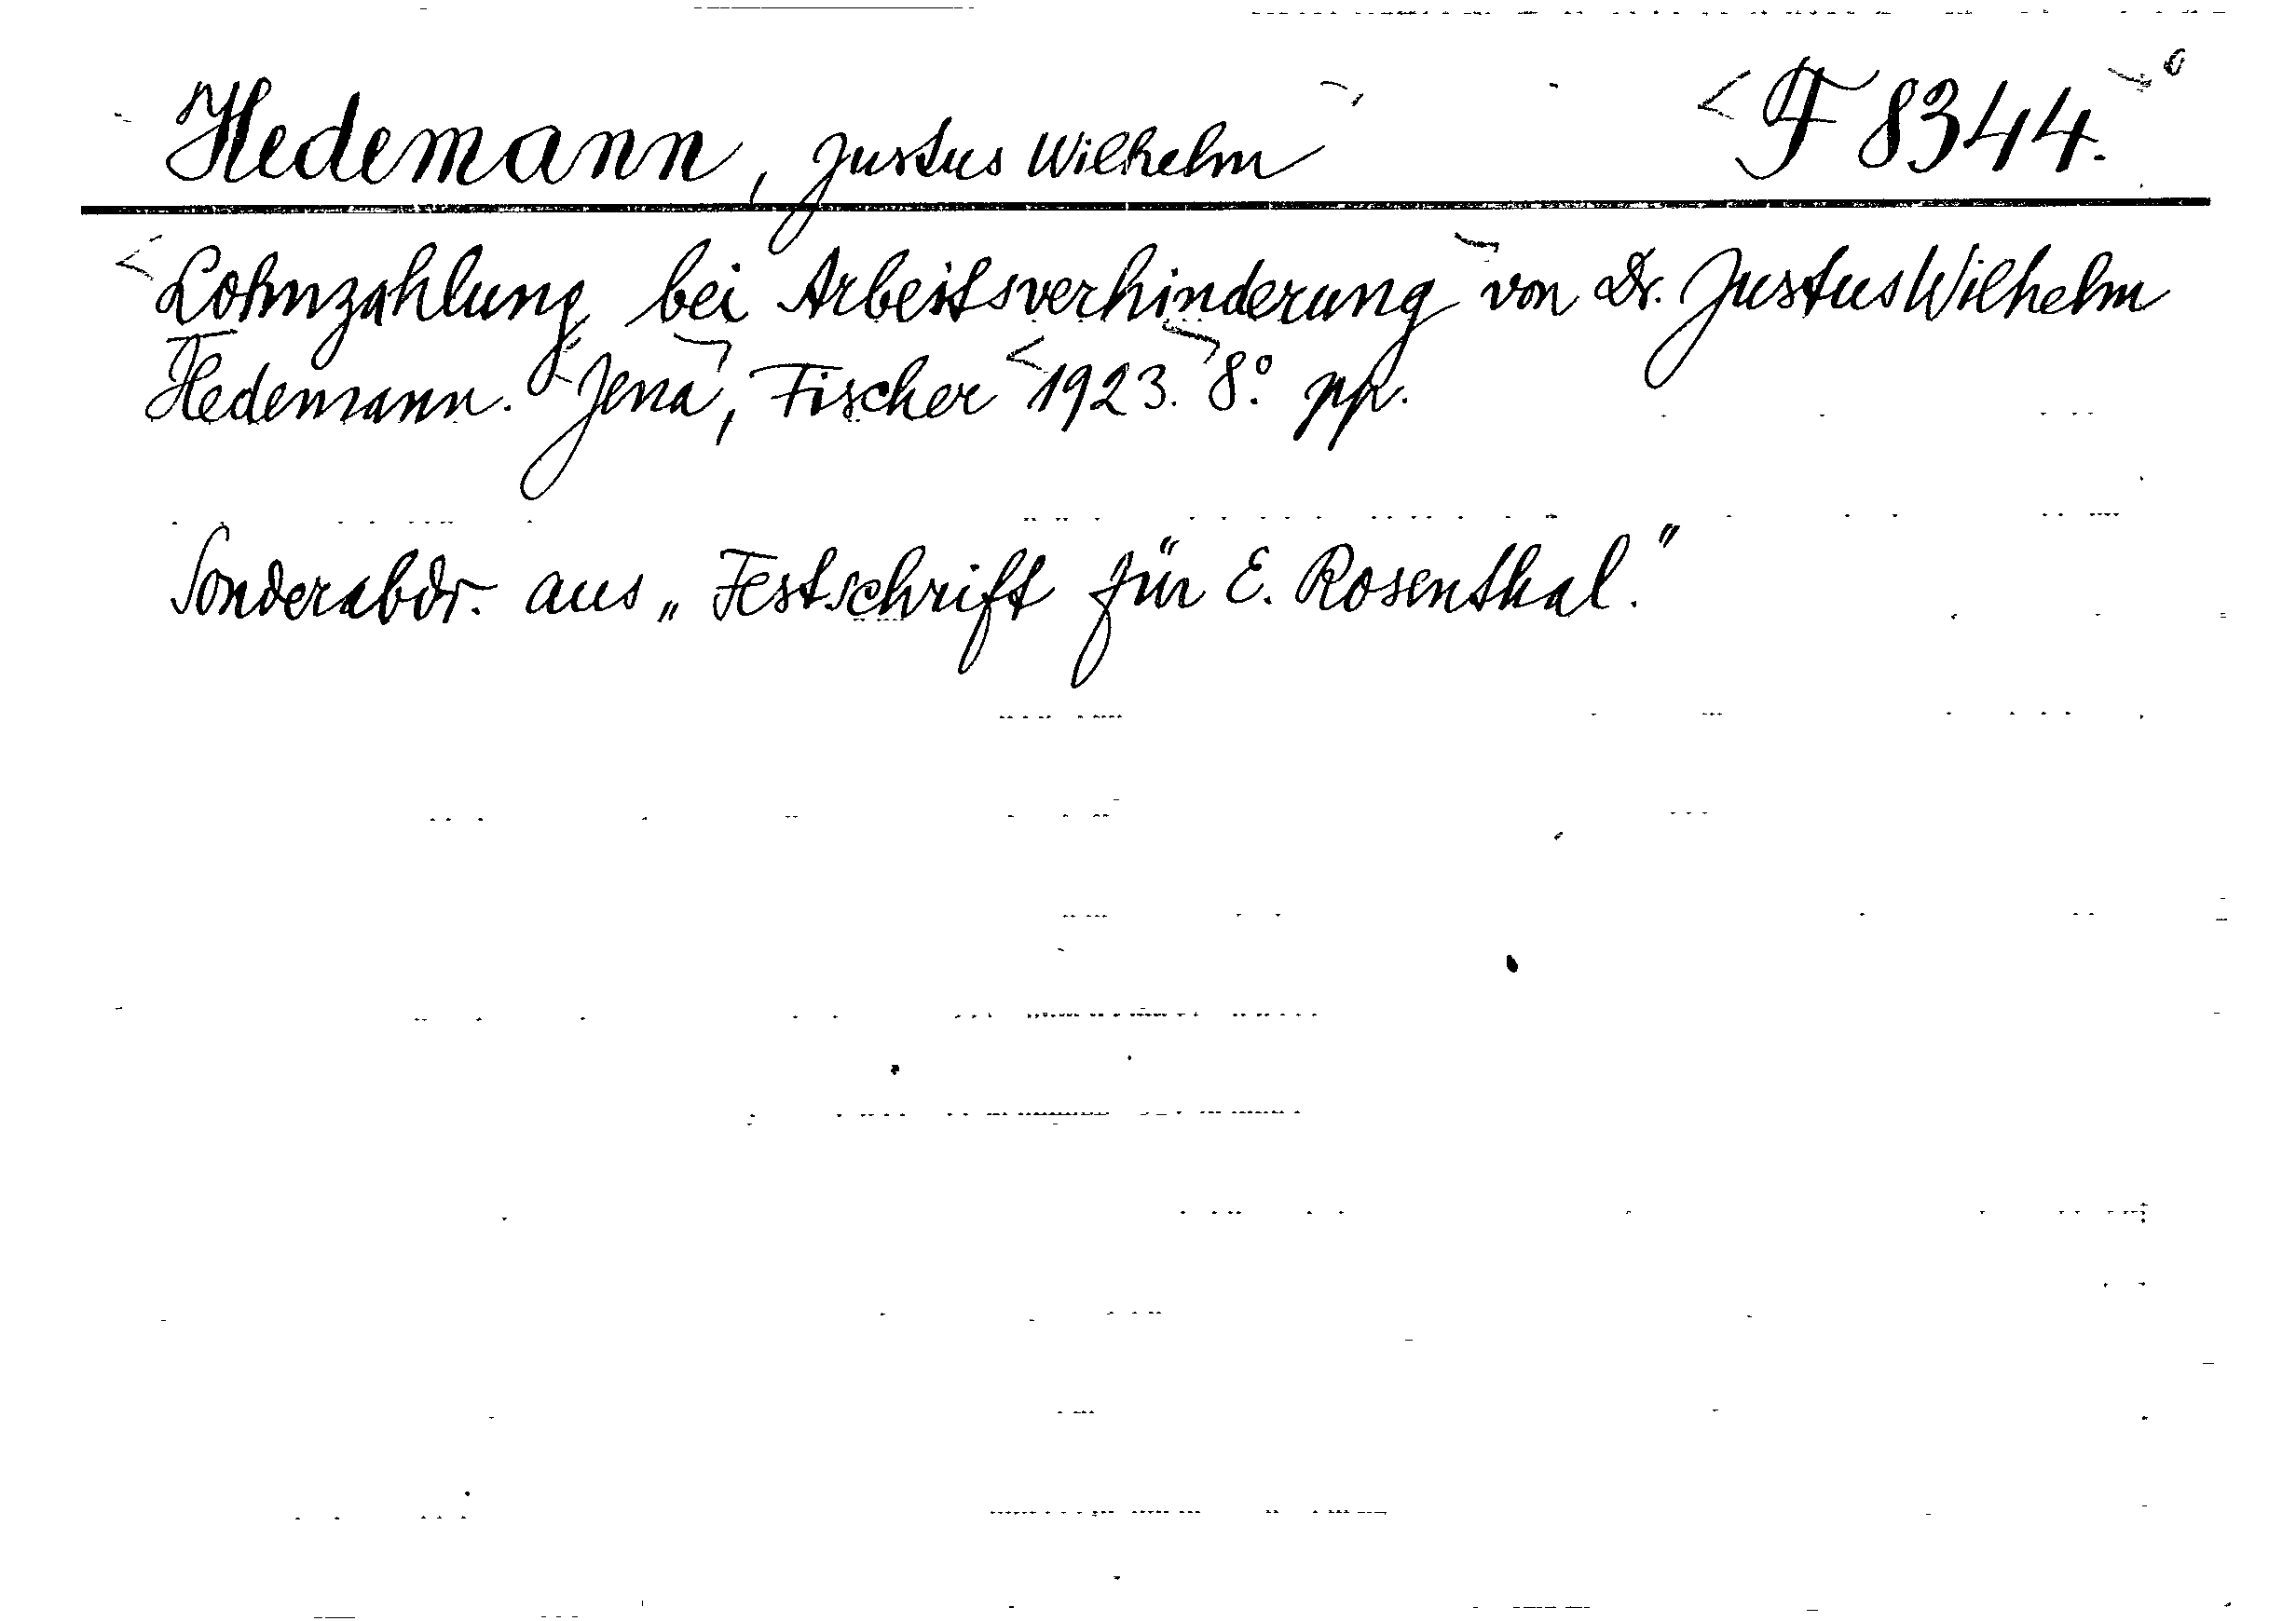 Hedemann, Justus Wilhelm F 8344.
Lohnzahlung bei Arbeitsverhinderung von Dr. Justus Wilhelm
Hedemann. Jena, Fischer 1923. 8° pp.
Sonderabdr. aus „Festschrift für E. Rosenthal."